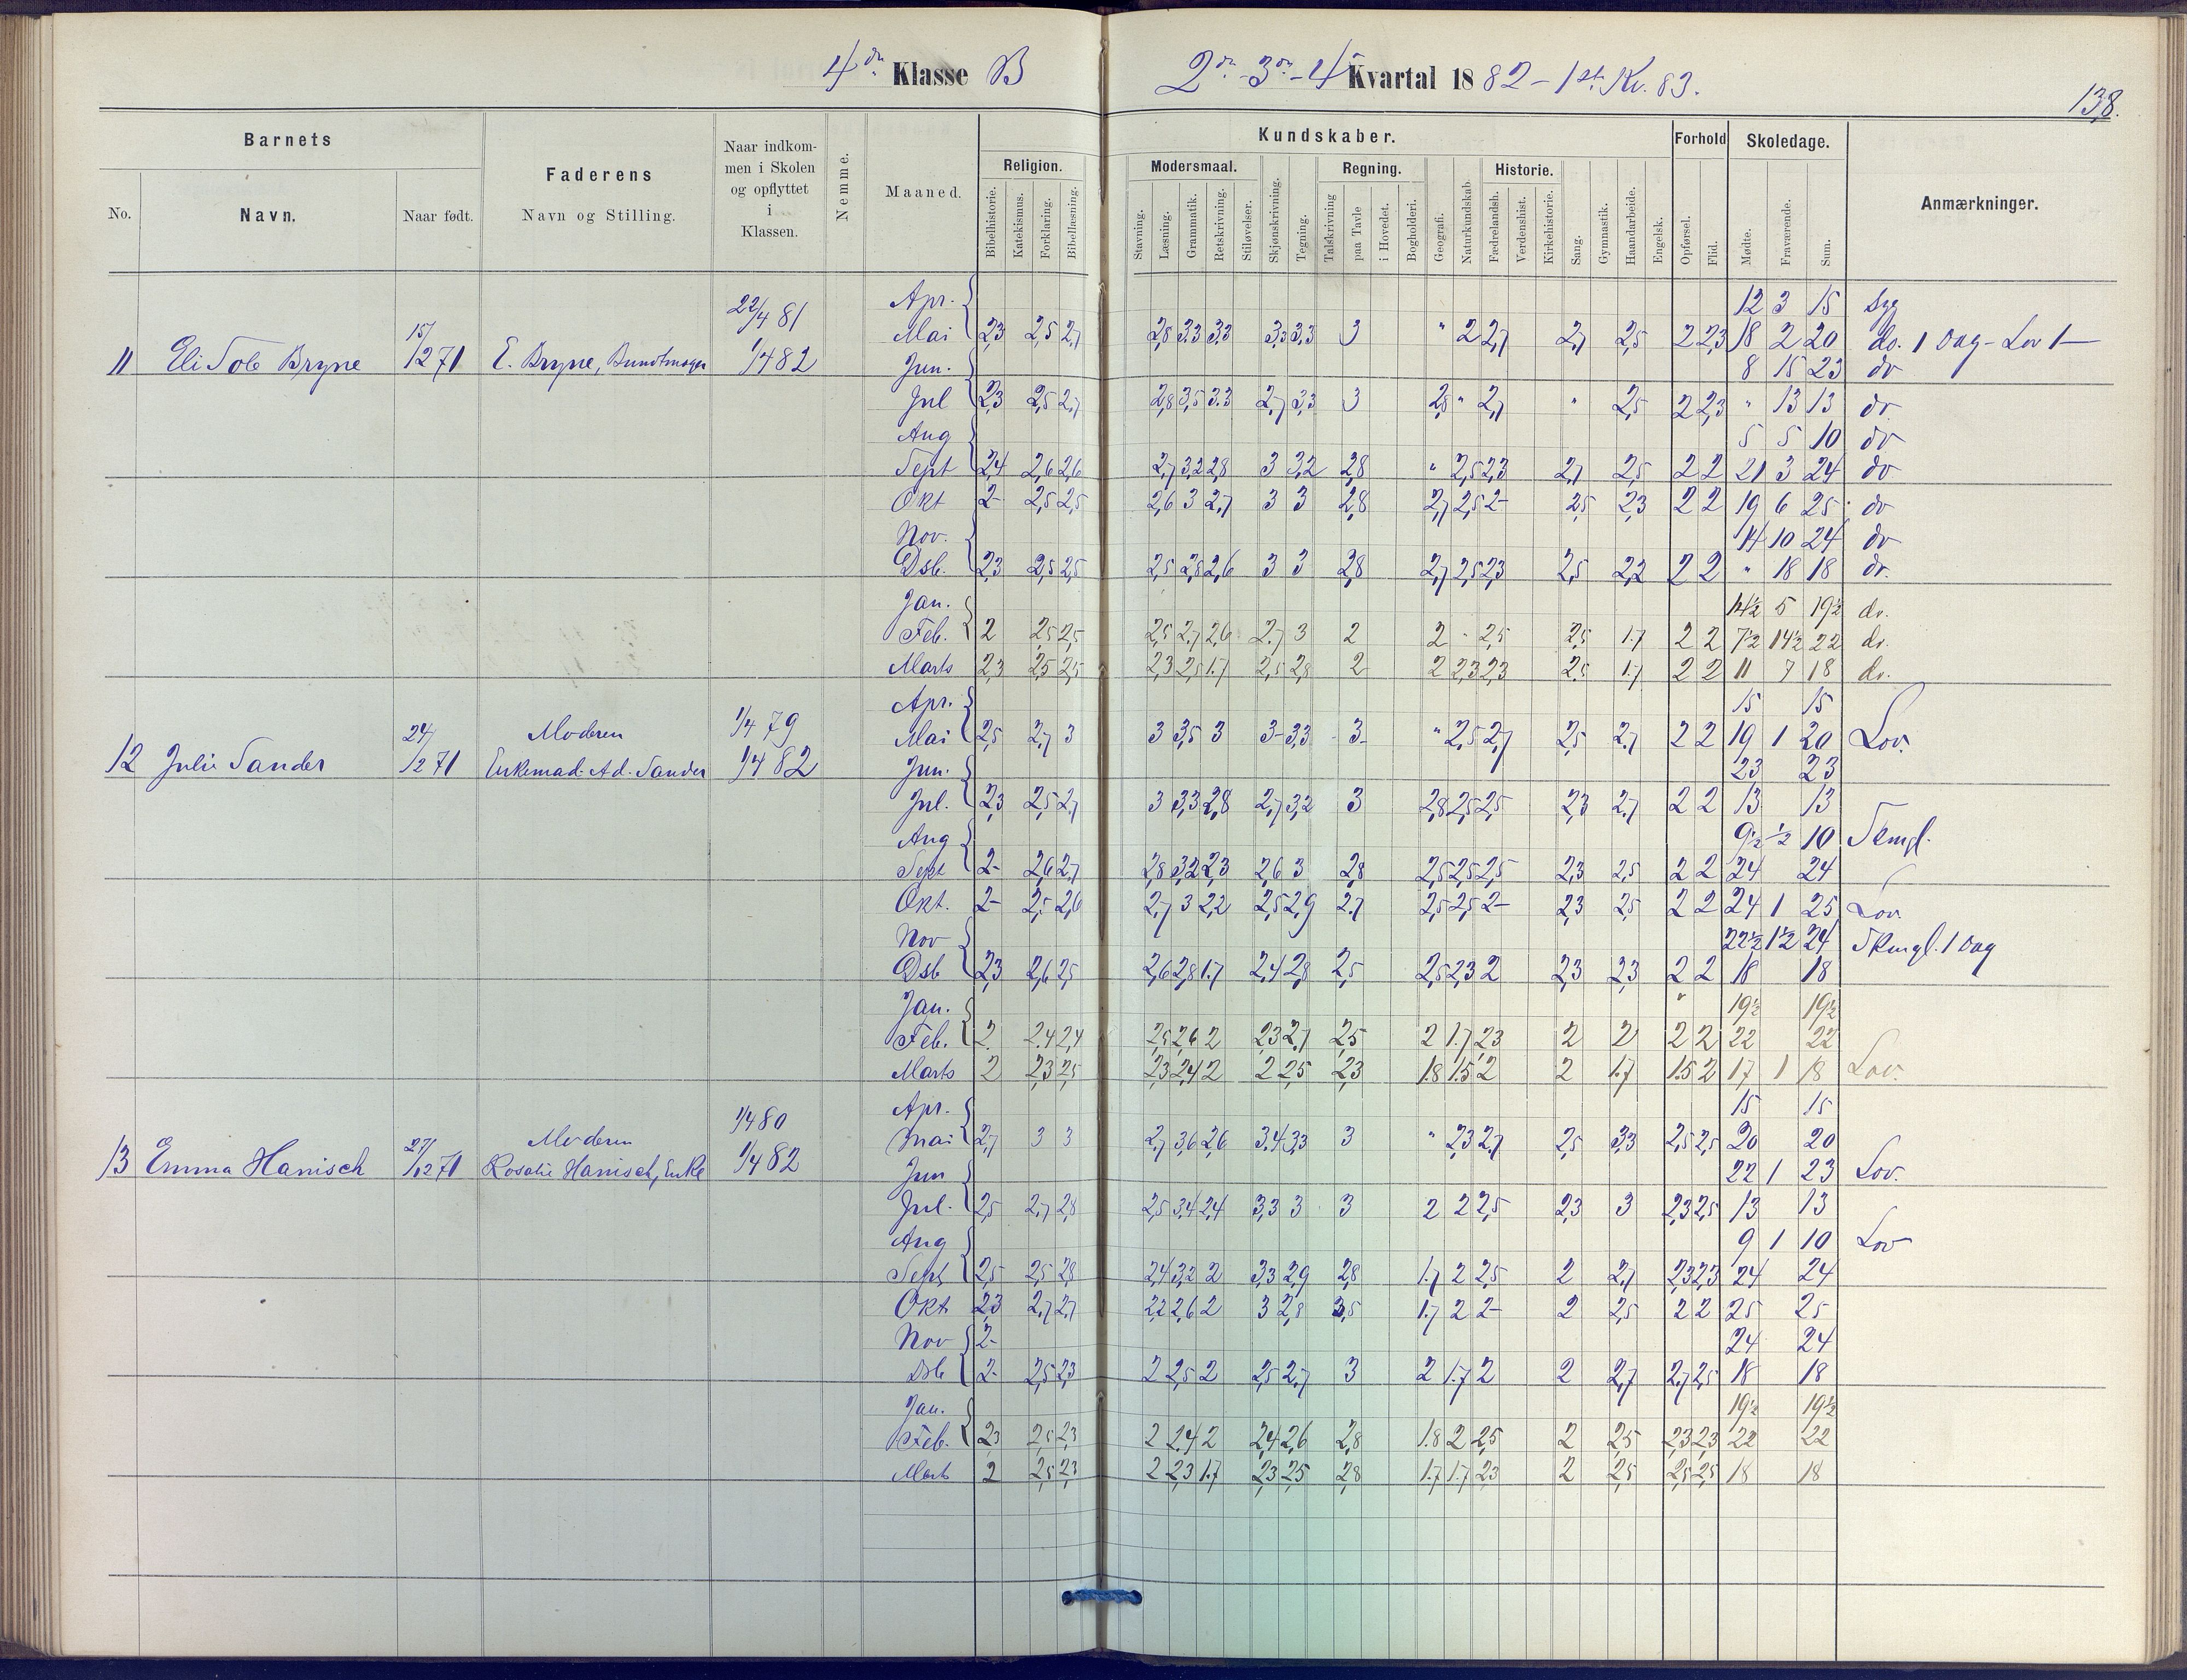 4de Klasse B
2den - 3den - 4 Kvartal 1882 - 1st. Kv. 83.
138.
Barnets
Faderens
Naar indkom-
men i Skolen
og opflyttet
i
Klassen.
Nemme.
Maaned.
No.
Navn.
Naar født.
Navn og Stilling.
Kundskaber.
Religion.
Bibelhistorie.
Katekismus.
Forklaring.
Bibellæsning.
Modersmaal.
Stavning.
Læsning.
Grammatik.
Retskrivning.
Stiløvelser.
Skjønskrivning.
Tegning.
Regning.
Talskrivning
paa Tavle
i Hovedet.
Bogholderi.
Geografi.
Naturkundskab.
Historie.
Fædrelandsh.
Verdenshist.
Kirkehistorie.
Sang.
Gymnastik.
Haandarbeide.
Engelsk.
Forhold
Opførsel.
Flid.
Skoledage.
Mødte.
Fraværende.
Sum.
Anmærkninger.
11 Eli Bryne 15/12 71 E. Bryne, Bundtmager 22/4 81 1/4 82
Apr. 12 3 15 Syg
Mai 2,3 2,5 2,7 2,8 3.3 3.3 3,3 3,3 3 " 2 2,7 2,7 2,5 2 2,3 18 2 20 do. 1 Dag - Lov 1 —
Jun. 8 15 23 do
Jul 2,3 2,5 2,7 2,8 3,5 3.3 2,7 3,3 3 2,8 " 2,7 " 2,5 2 2,3 " 13 13 do
Aug 5 5 10 do
Sept 2,4 2,6 2,6 2,7 3,2 2,8 3 3,2 2,8 " 2,5 2,3 2,7 2,5 2 2 21 3 24 do
Okt 2- 2,5 2,5 2,6 3 2,7 3 3 2,8 2,7 2,5 2- 2,5 2,3 2 2 19 6 25 do
Nov. 14 10 24 do
Dsb. 2,3 2,5 2,5 2,5 2,8 2,6 3 3 2,8 2,7 2,5 2,3 2,5 2,2 2 2 " 18 18 do.
Jan. 14½ 5 19½ do.
Feb. 2 2,5 2,5 2,5 2,7 2,6 2,7 3 2 2 " 2,5 2,5 1.7 2 2 7½ 14½ 22 do.
Marts 2,3 2,5 2,5 2,3 2,5 1.7 2,5 2,8 2 2 2,3 2,3 2,5 1.7 2 2 11 7 18 do.
12 Julie Sander 24/12 71 Moderen Enkemad. Ad. Sander 1/4 79 1/4 82
Apr. 15 15
Mai 2,5 2,7 3 3 3,5 3 3- 3,3 3- " 2,5 2,7 2,5 2,7 2 2 19 1 20 Lov.
Jun. 23 23
Jul. 2,3 2,5 2,7 3 3,3 2,8 2,7 3,2 3 2,8 2,5 2,5 2,3 2,7 2 2 13 13
Aug 9½ ½ 10
Sept 2- 2,6 2,7 2,8 3,2 2,3 2,6 3 2,8 2,5 2,5 2,5 2,3 2,5 2 2 24 24
Okt. 2- 2,5 2,6 2,7 3 2,2 2,5 2,9 2,7 2,5 2,5 2- 2,3 2,5 2 2 24 1 25 Lov
Nov 22½ 1½ 24 1 Dag
Dsb 2,3 2,6 2,5 2,6 2,8 1.7 2,4 2,8 2,5 2,5 2,3 2 2,3 2,3 2 2 18 18
Jan. 19½ 19½
Feb. 2 2,4 2,4 2,5 2,6 2 2,3 2,7 2,5 2 1.7 2,3 2 2 2 2 22 22
Marts 2 2,3 2,5 2,3 2,4 2 2 2,5 2,3 1.8 1.5 2 2 1.7 1.5 2 17 1 18 Lov.
13 Emma Hanisch 27/12 71 Moderen Rosalie Hanisch, Enke 1/4 80 1/4 82
Apr. 15 15
Mai 2,7 3 3 2,7 3,6 2,6 3,4 3,3 3 " 2,3 2,7 2,5 3,3 2,5 2,5 20 20
Jun 22 1 23 Lov.
Jul. 2,5 2,7 2,8 2,5 3,4 2,4 3,3 3 3 2 2 2,5 2,3 3 2,3 2,5 13 13
Aug 9 1 10 Lov
Sept 2,5 2,5 2,8 2,4 3,2 2 3,3 2,9 2,8 1.7 2 2,5 2 2,7 2,3 2,3 24 24
Okt 2,3 2,7 2,7 2,2 2,6 2 3 2,8 3,5 1.7 2 2- 2 2,5 2 2 25 25
Nov 2- 24 24
Dsb 2- 2,5 2,3 2 2,5 2 2,5 2,7 3 2 1.7 2 2 2,7 2,7 2,5 18 18
Jan. 19½ 19½
Feb. 2,3 2,5 2,3 2 2,4 2 2,4 2,6 2,8 1.8 2 2,5 2 2,5 2,3 2,3 22 22
Marts 2 2,5 2,3 2 2,3 1.7 2,3 2,5 2,8 1.7 1.7 2,3 2 2,5 2,5 2,5 18 18